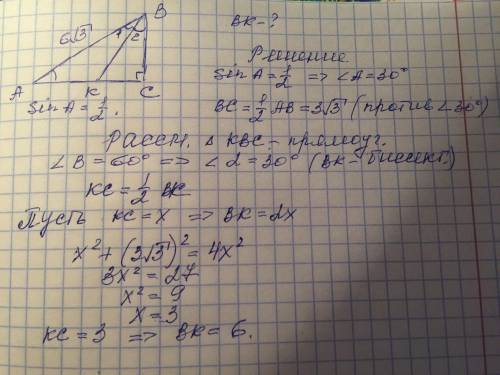 B
BK - ?
6√3
1
2
A
K
C
Sin A = 1/2.
Решение
Sin A = 1/2 => ∠A = 30°
BC = 1/2 AB = 3√3 (против ∠30°)
Рассм. △ KBC - прямоуг.
∠B = 60° => ∠2 = 30° (BK - биссект.)
KC = 1/2 BK
Пусть KC = x => BK = 2x
x² + (3√3)² = 4x²
3x² = 27
x² = 9
x = 3
KC = 3 => BK = 6.